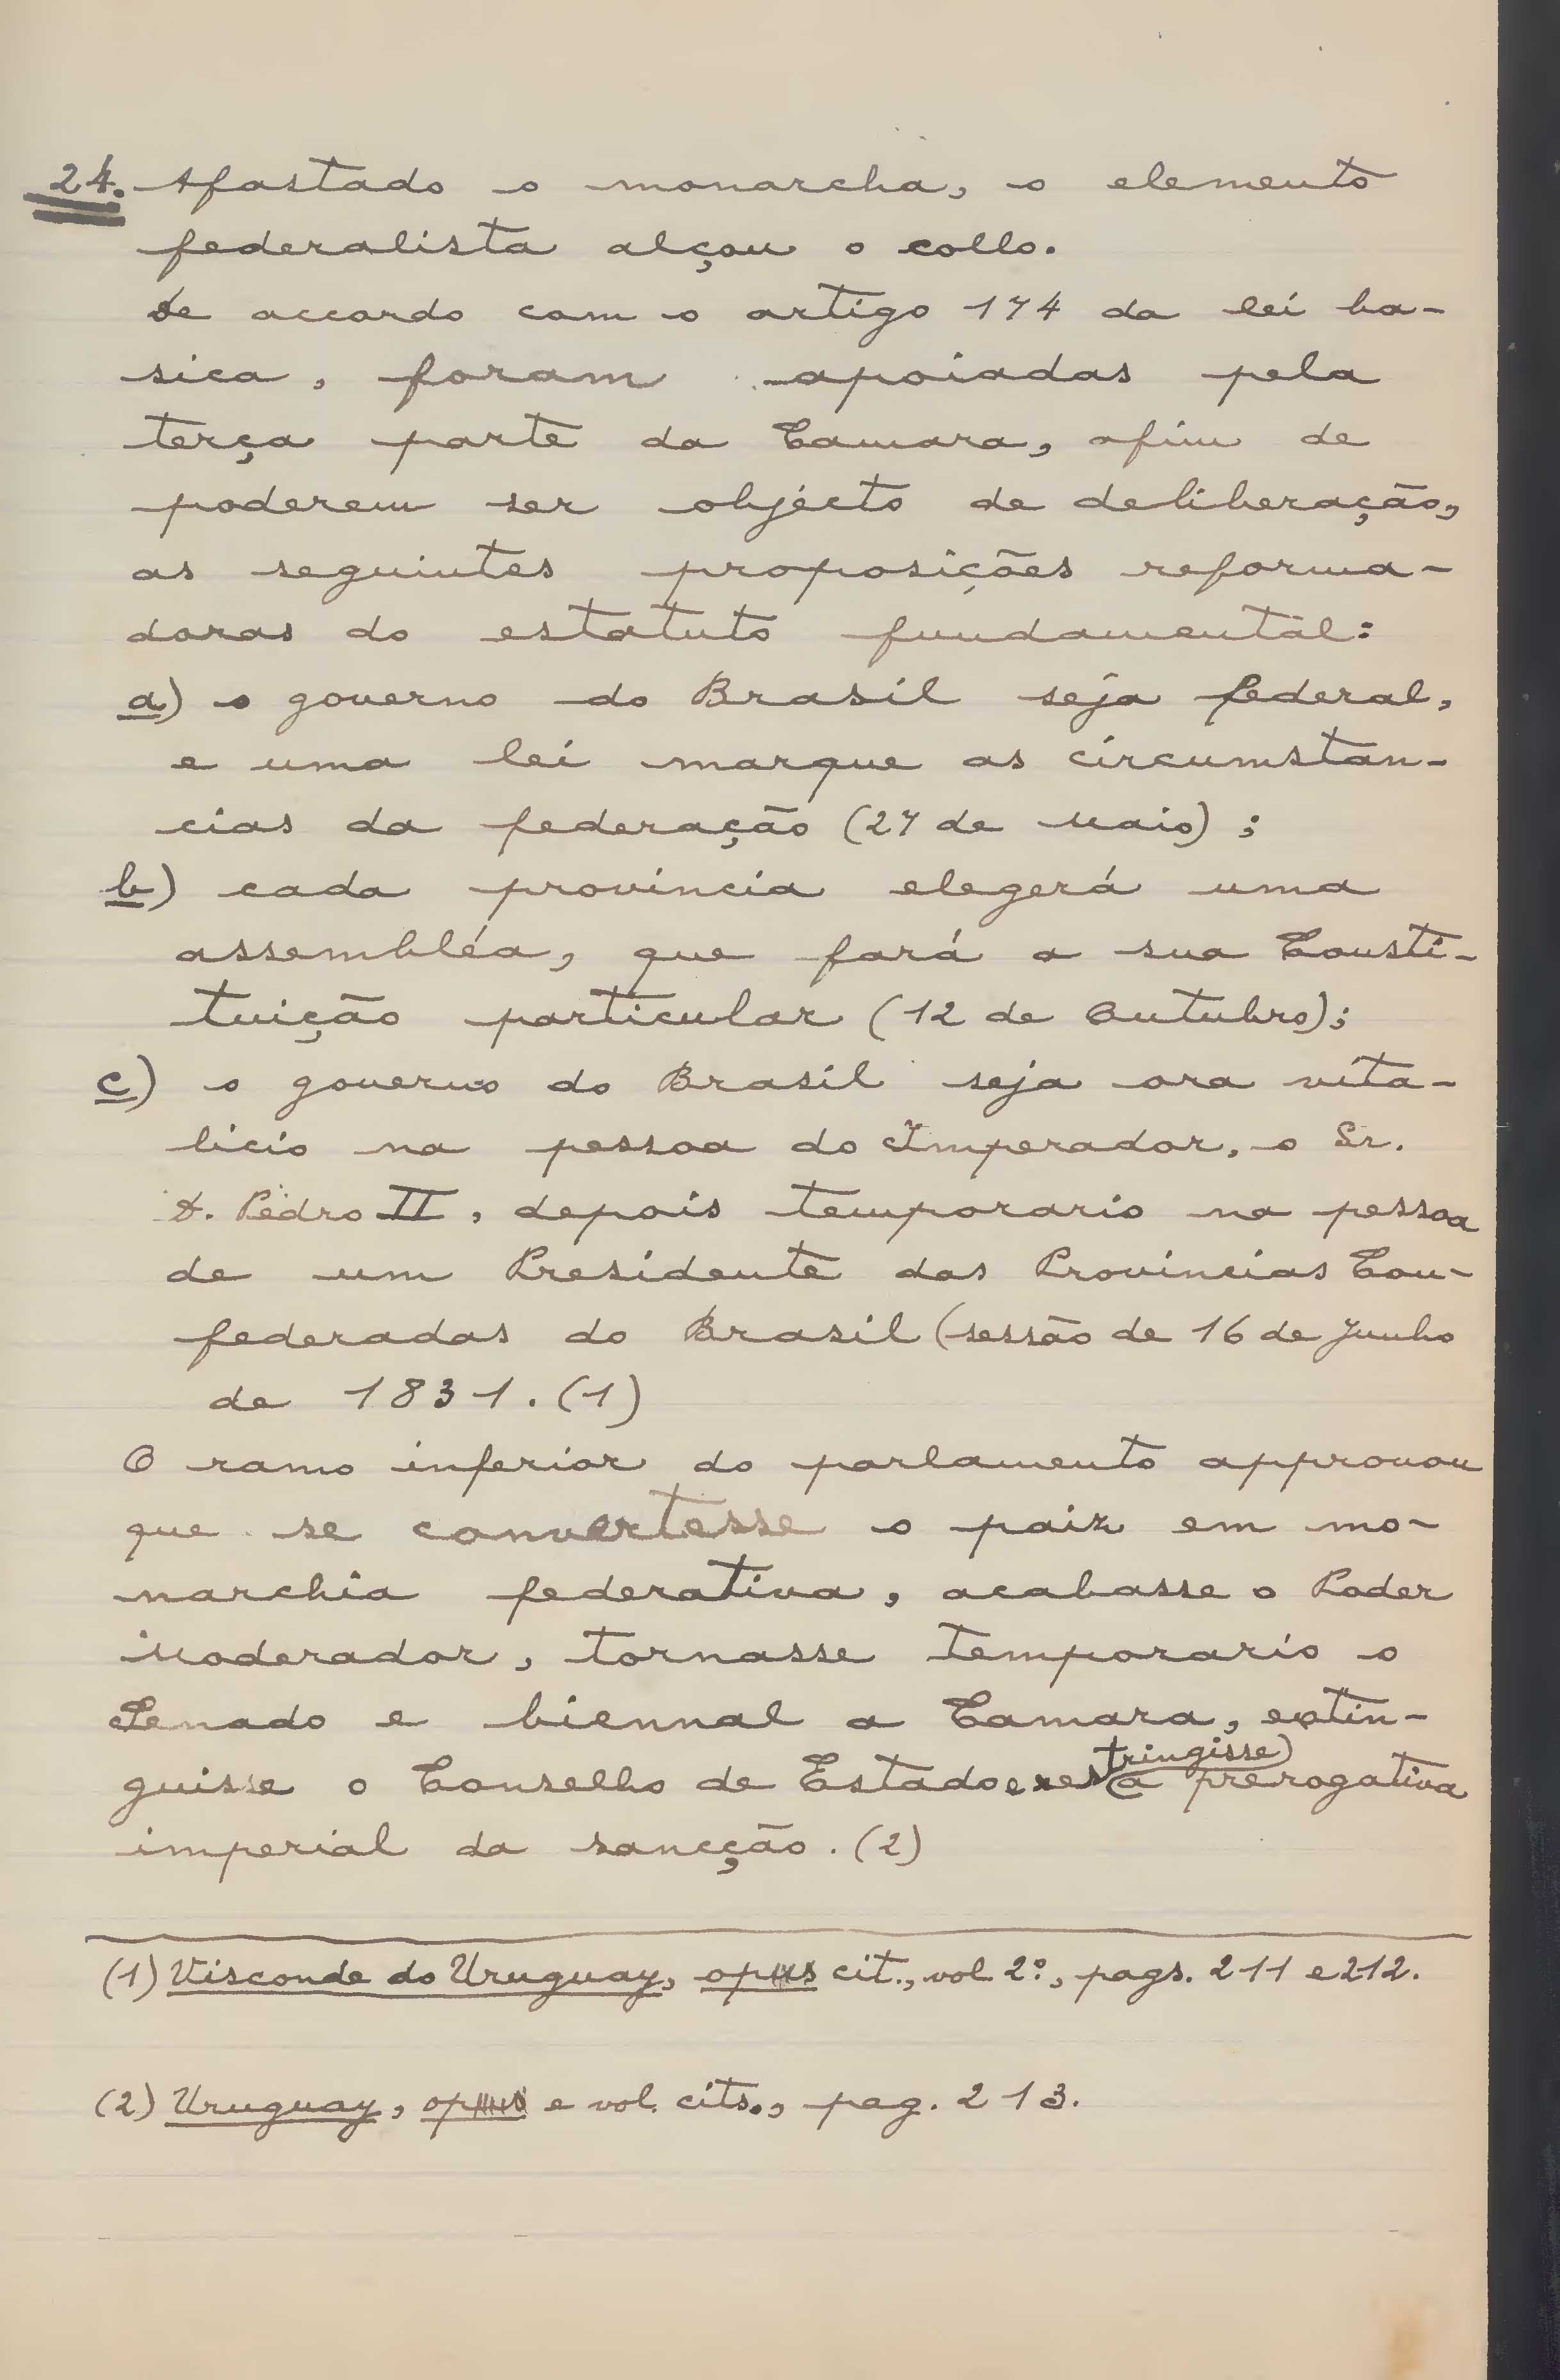 24. Afastado o monarcha, o elemento
federalista alçou o collo.
De accordo com o artigo 174 da lei ba-
sica, foram apoiadas pela
terça parte da Camara, afim de
poderem ser objecto de deliberação,
as seguintes proposições reforma-
doras do estatuto fundamental:
a) o governo do Brasil seja federal,
e uma lei marque as circumstan-
cias da federação (27 de Maio);
b) cada provincia elegerá uma
assembléa, que fará a sua Consti-
tuição particular (12 de Outubro);
c) o governo do Brasil seja ora vita-
licio na pessoa do Imperador, o Sr.
D. Pedro II, depois temporario na pessoa
de um Presidente das Provincias Con-
federadas do Brasil (sessão de 16 de Junho
de 1831. (1)
O ramo inferior do parlamento approvou
que se convertesse o paiz em mo-
narchia federativa, acabasse o Poder
Moderador, tornasse temporario o
Senado e biennal a Camara, extin-
guisse o Conselho de Estado e restringisse a prerogativa
imperial da sancção. (2)
(1) Visconde do Uruguay, opus cit., vol. 2º, pags. 211 e 212.
(2) Uruguay, opus e vol. cits., pag. 213.